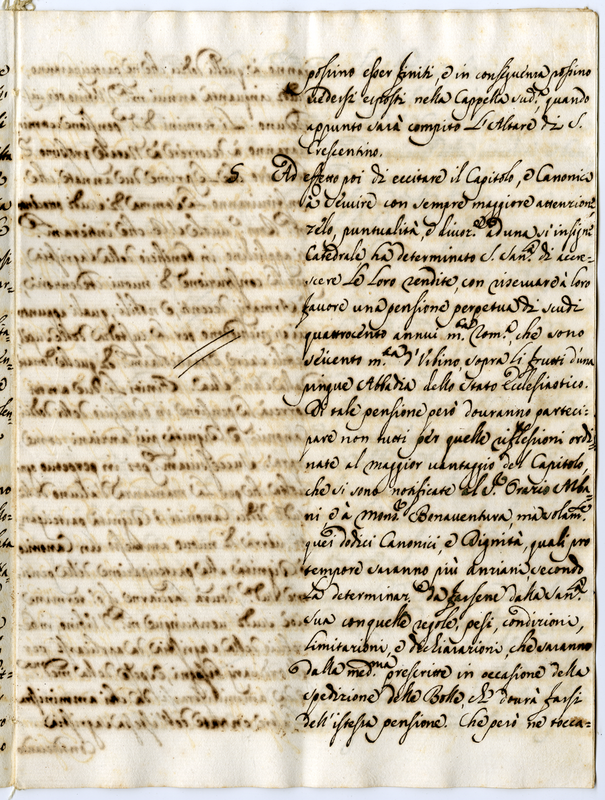 possino esser finiti, e in conseguenza possino
vedersi esposti nella Cappella sud.ª quando
appunto sarà compito l'Altare di S.
Crescentino.
5. Ad effetto poi di eccitare il Capitolo, e Canonici
à servire con sempre maggiore attenzione,
zelo, puntualità, e divoz.ne ad una si insigne
Catedrale ha determinato S. San.tà di accre-
scere le loro rendite, con riservare à loro
favore una pensione perpetua di scudi
quattrocento annui m.ta Rom.ª, che sono
seicento m.ta d'Urbino, sopra li frutti d'una
pingue Abbadia dello Stato Ecclesiastico.
Di tale pensione però dovranno parteci-
pare non tutti per quelle riflessioni ordi-
nate al maggior vantaggio del Capitolo,
che si sono notificate al S.r Orazio Alba-
ni, e à Mons.r Bonaventura, ma solam.te
quei dodici Canonici, e Dignità, quali pro
tempore saranno più anziani, secondo
la determinaz.ne da farsene dalla San.tà
Sua con quelle regole, pesi, condizioni,
limitazioni, e dichiarazioni, che saranno
dalla med.ma prescritte in occasione della
spedizione delle Bolle, che dovrà farsi
dell'istessa pensione. Che però ne tocca-